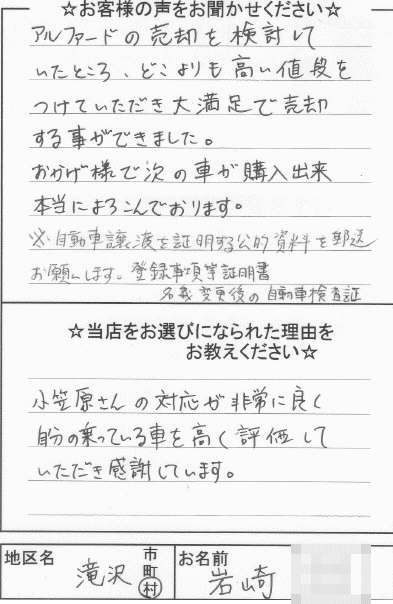 ☆お客様の声をお聞かせください☆
アルファードの売却を検討して
いたところ、どこよりも高い値段を
つけていただき大満足で売却
する事ができました。
おかげ様で次の車が購入出来
本当によろこんでおります。
※自動車譲渡を証明する公的資料を郵送
お願いします。登録事項等証明書
名義変更後の自動車検査証
☆当店をお選びになられた理由を
お教えください☆
小笠原さんの対応が非常に良く
自分の乗っている車を高く評価して
いただき感謝しています。
地区名 滝沢 市町村
お名前 岩崎